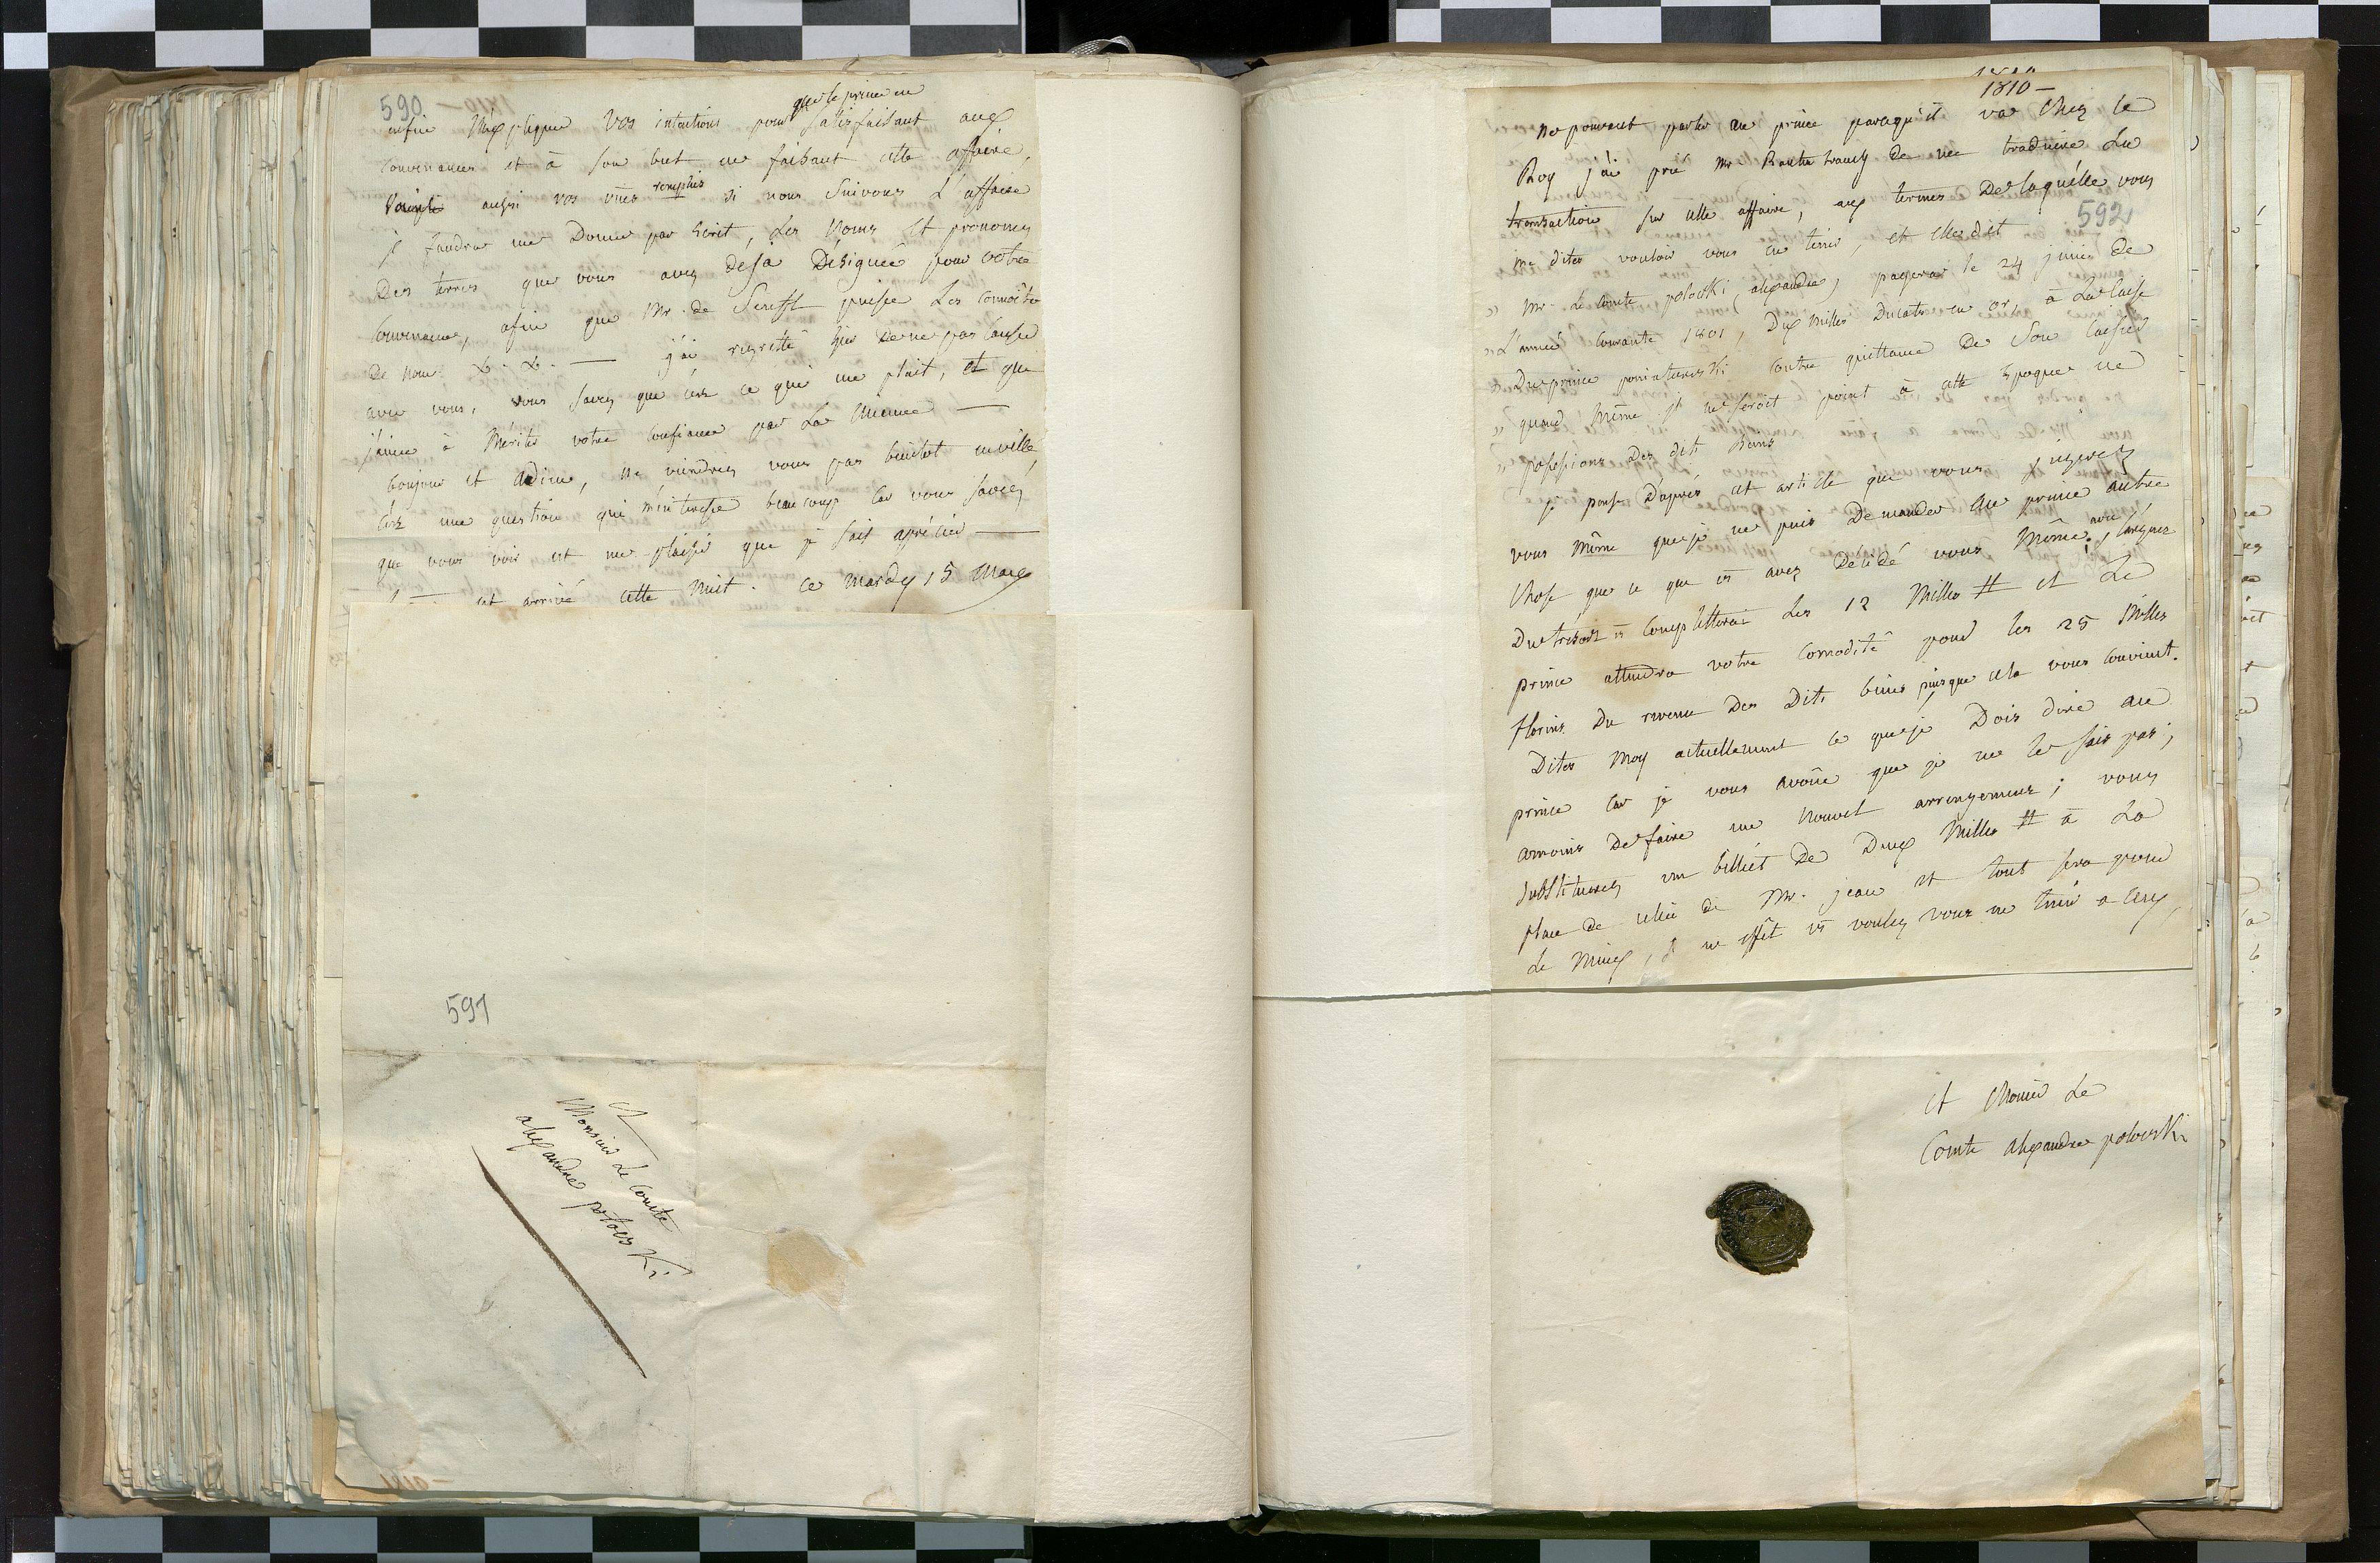 590
que le prince en
enfin m'explique vos intentions pour satisfaisant aux
convenances et à son but en faisant cette affaire,
remplis
aussi vos vües si nous suivons L'affaire
il faudra me Donner par écrit, Les Noms et prenoms
Des terres que vous avez desja Désignée pour votre
convenance, afin que Mr. de Senfft puisse Les connoitre
De nom &. &. — j'ai regretté hier de ne pas causer
avec vous, vous savez que c'est ce qui me plait, et que
j'aime à mériter votre confiance par La mienne —
bonjour et adieu, ne viendrez vous pas bientot en ville
c'est une question qui m'interesse beaucoup car vous savez
que vous voir est un plaisir que je sais aprétier —
est arrivé cette nuit. ce mardy 15 Mars
591
A
Monsieur Le Comte
alexandre potocki
1810 —
Ne pouvant parler au prince parcequ'il va chez le
Roy j'ai prié Mr de me traduire La
transaction sur cette affaire, aux termes De laquelle vous
592
me dites vouloir vous en tenir, et elle dit
" Mr. Le comte potocki (alexandre) payera le 24 juin de
" L'année courante 1801, Dix milles Ducats en or, à La Caisse
" Du prince poniatowski contre quittance De Son Caissier
" quand même il ne seroit point à cette Epoque en
" possessions Des dits biens
je pense D'après cet article que vous jugerez
vous même que je ne puis Demander au prince autre
chose que ce que vs avez Décidé vous même, avec l'argent
Du trésor vs completterai Les 12 Milles # et Le
prince attendra votre comodité pour les 25 Milles
florins Du revenu Des Dits biens puisque cela vous convient.
Dites moy actuellement ce que je Dois dire au
prince car je vous avoüe que je ne le sais pas,
amoins De faire un nouvel arrangement; vous
substituerez un billiet De Deux Milles # à La
place de celui de Mr. jean et tout sera pour
Le Mieux, si en effet vs voulez vous en tenir a ceux,
A Monsier Le
Comte alexandre potocki